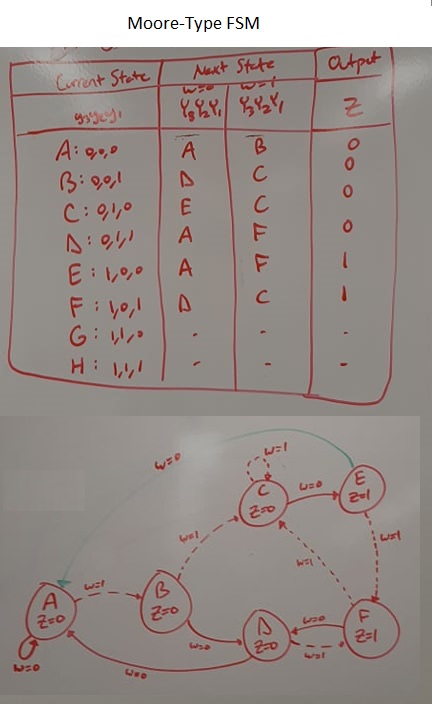 Moore-Type FSM
Current State Next State Output
w=0 w=1
y3y2y1 Y3Y2Y1 Y3Y2Y1 Z
A: 0,0,0 A B 0
B: 0,0,1 D C 0
C: 0,1,0 E C 0
D: 0,1,1 A F 0
E: 1,0,0 A F 1
F: 1,0,1 D C 1
G: 1,1,0 - - -
H: 1,1,1 - - -
w=0
w=1
C
Z=0
w=0
E
Z=1
w=1
w=1
w=1
A
Z=0
w=1
B
Z=0
w=0
D
Z=0
w=0
w=1
F
Z=1
w=0
w=0